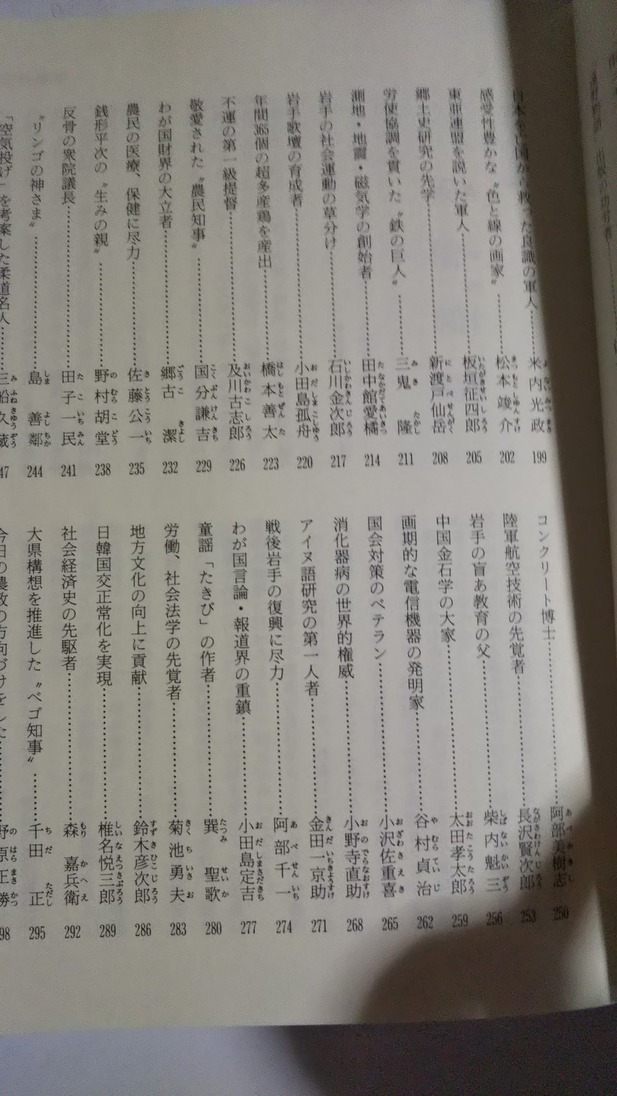 日本を亡国から救った良識の軍人……米内光政 199
感受性豊かな〝色と線の画家〟……松本竣介 202
東亜連盟を説いた軍人……板垣征四郎 205
郷土史研究の先学……新渡戸仙岳 208
労使協調を貫いた〝鉄の巨人〟……三鬼隆 211
測地・地震・磁気学の創始者……田中館愛橘 214
岩手の社会運動の草分け……石川金次郎 217
岩手歌壇の育成者……小田島孤舟 220
年間365個の超多産鶏を産出……橋本善太 223
不運の第一級提督……及川古志郎 226
敬愛された〝農民知事〟……国分謙吉 229
わが国財界の大立者……郷古潔 232
農民の医療、保健に尽力……佐藤公一 235
銭形平次の〝生みの親〟……野村胡堂 238
反骨の衆院議長……田子一民 241
〝リンゴの神さま〟……島善鄰 244
「空気投げ」を考案した柔道名人……三船久蔵 47
コンクリート博士……阿部美樹志 250
陸軍航空技術の先覚者……長沢賢次郎 253
岩手の盲あ教育の父……柴内魁三 256
中国金石学の大家……太田孝太郎 259
画期的な電信機器の発明家……谷村貞治 262
国会対策のベテラン……小沢佐重喜 265
消化器病の世界的権威……小野寺直助 268
アイヌ語研究の第一人者……金田一京助 271
戦後岩手の復興に尽力……阿部千一 274
わが国言論・報道界の重鎮……小田島定吉 277
童謡「たきび」の作者……巽聖歌 280
労働、社会法学の先覚者……菊池勇夫 283
地方文化の向上に貢献……鈴木彦次郎 286
日韓国交正常化を実現……椎名悦三郎 289
社会経済史の先駆者……森嘉兵衛 292
大県構想を推進した〝ベゴ知事〟……千田正 295
今日の農政の方向づけをした……野原正勝 98